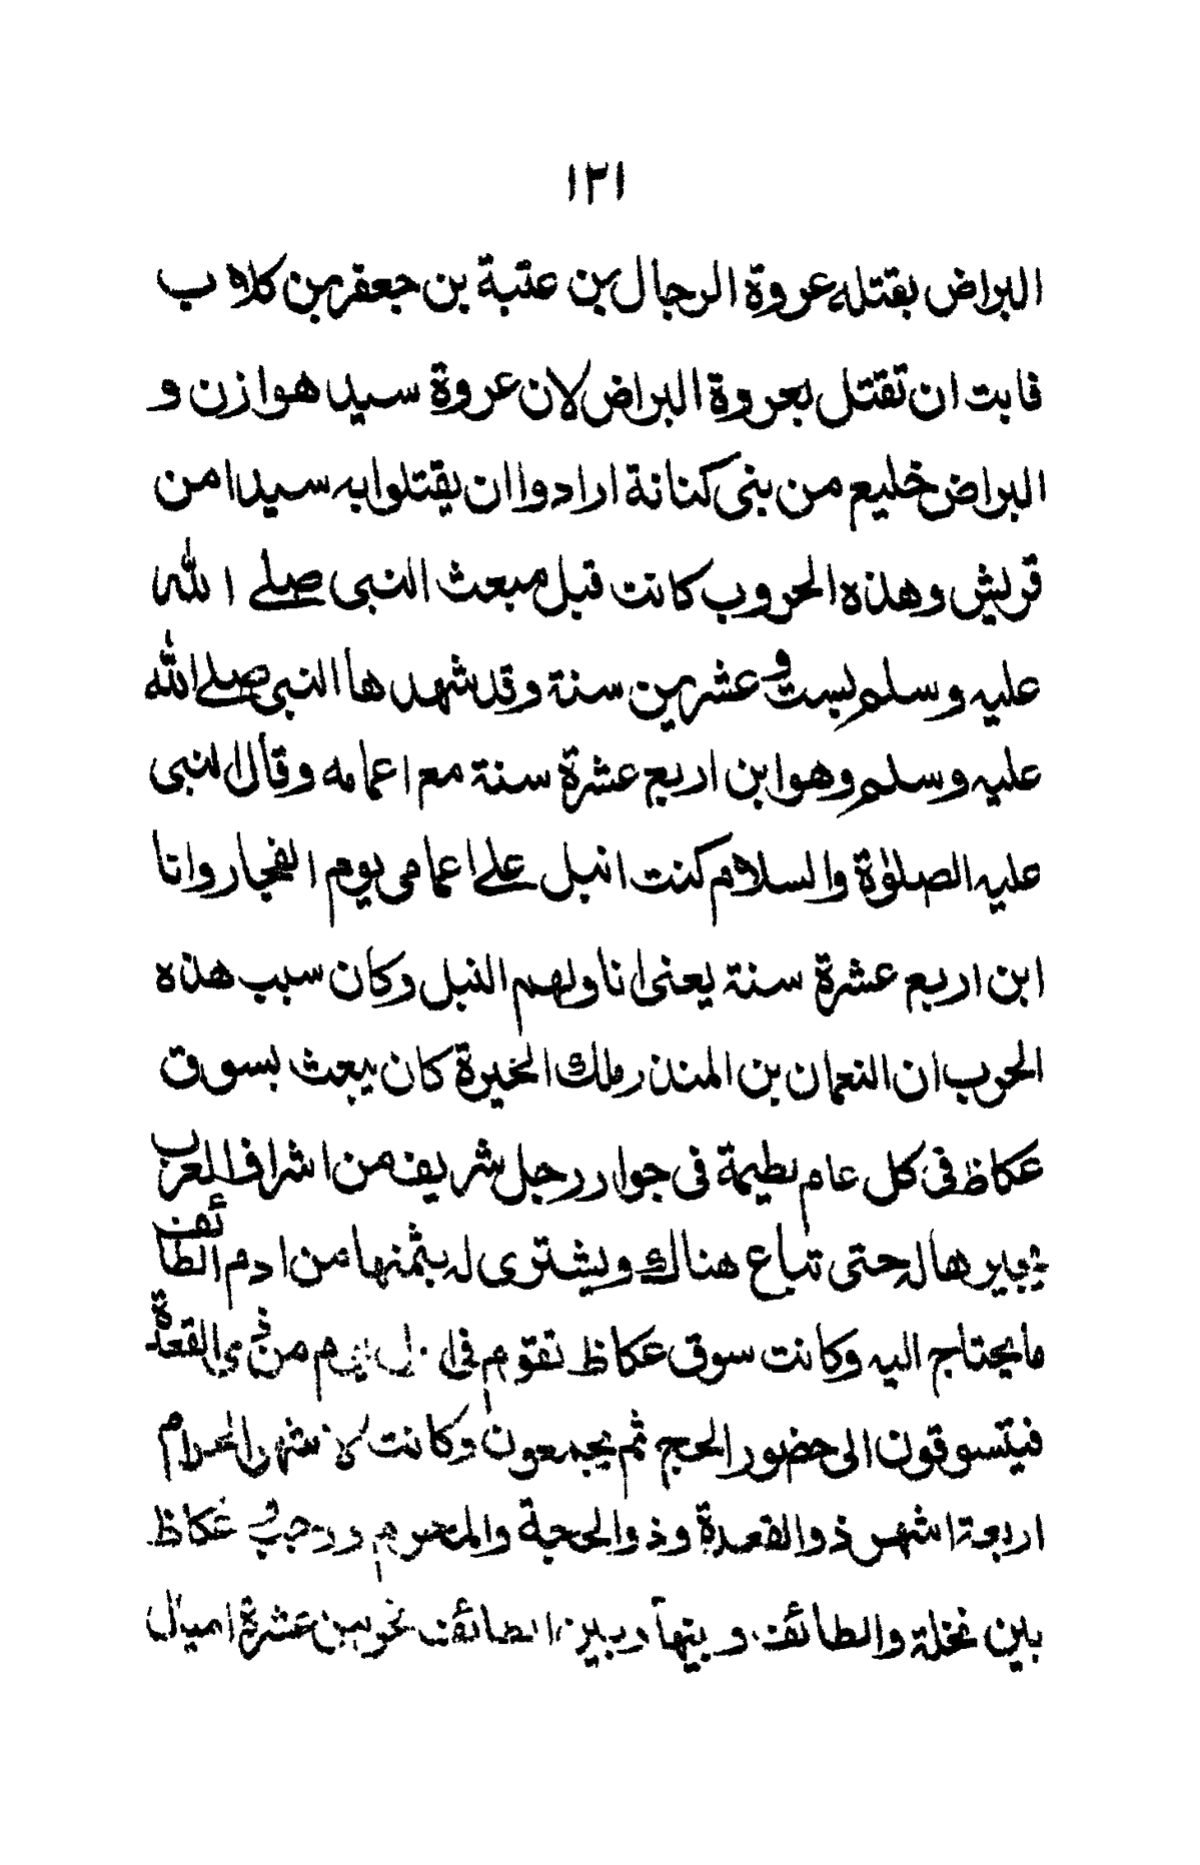 ١٢١
البراض بقتله عروة الرجال بن عتبة بن جعفر بن كلاب
فابت ان تقتل بعروة البراض لان عروة سيد هوازن و
البراض خليع من بنى كنانة ارادوا ان يقتلوا به سيدا من
قريش وهذه الحروب كانت قبل مبعث النبى صلے الله
عليه وسلم بست و عشرين سنة وقد شهدها النبى صلے الله
عليه وسلم وهو ابن اربع عشرة سنة مع اعمامه وقال النبى
عليه الصلوٰة والسلام كنت انبل علے اعمامى يوم الفجار وانا
ابن اربع عشرة سنة يعنى اناولهم النبل وكان سبب هذه
الحرب ان النعمان بن المنذر ملك الخيرة كان يبعث بسوق
عكاظ فى كل عام لطيمة فى جوار رجل شريف من اشراف العرب
يجيرها له حتى تباع هناك ويشترى له بثمنها من ادم الطائف
ما يحتاج اليه وكانت سوق عكاظ تقوم فى يوم من ذى القعدة
فيتسوقون الى حضور الحج ثم يجمعون وكانت الاشهر الحرام
اربعة اشهر ذو القعدة وذو الحجة والمحرم ورجب و عكاظ
بين نخلة والطائف وبينها وبين الطائف نحو من عشرة اميال